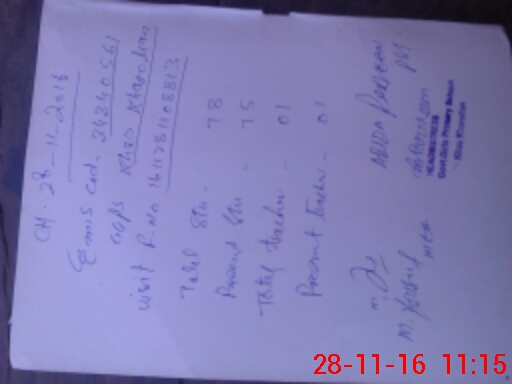 CH. 28-11-2016
Emis Cod. 34340561
GGPS Khas Kharolian
Visit P. No 1611281108813
Total Stu - 78
Present Stu - 75
Total teacher - 01
Present teacher - 01
Abida Parveen
PST
HEADMISTRESS
Govt. Girls Primary School
M. Yousaf MEA
28-11-16 11:15